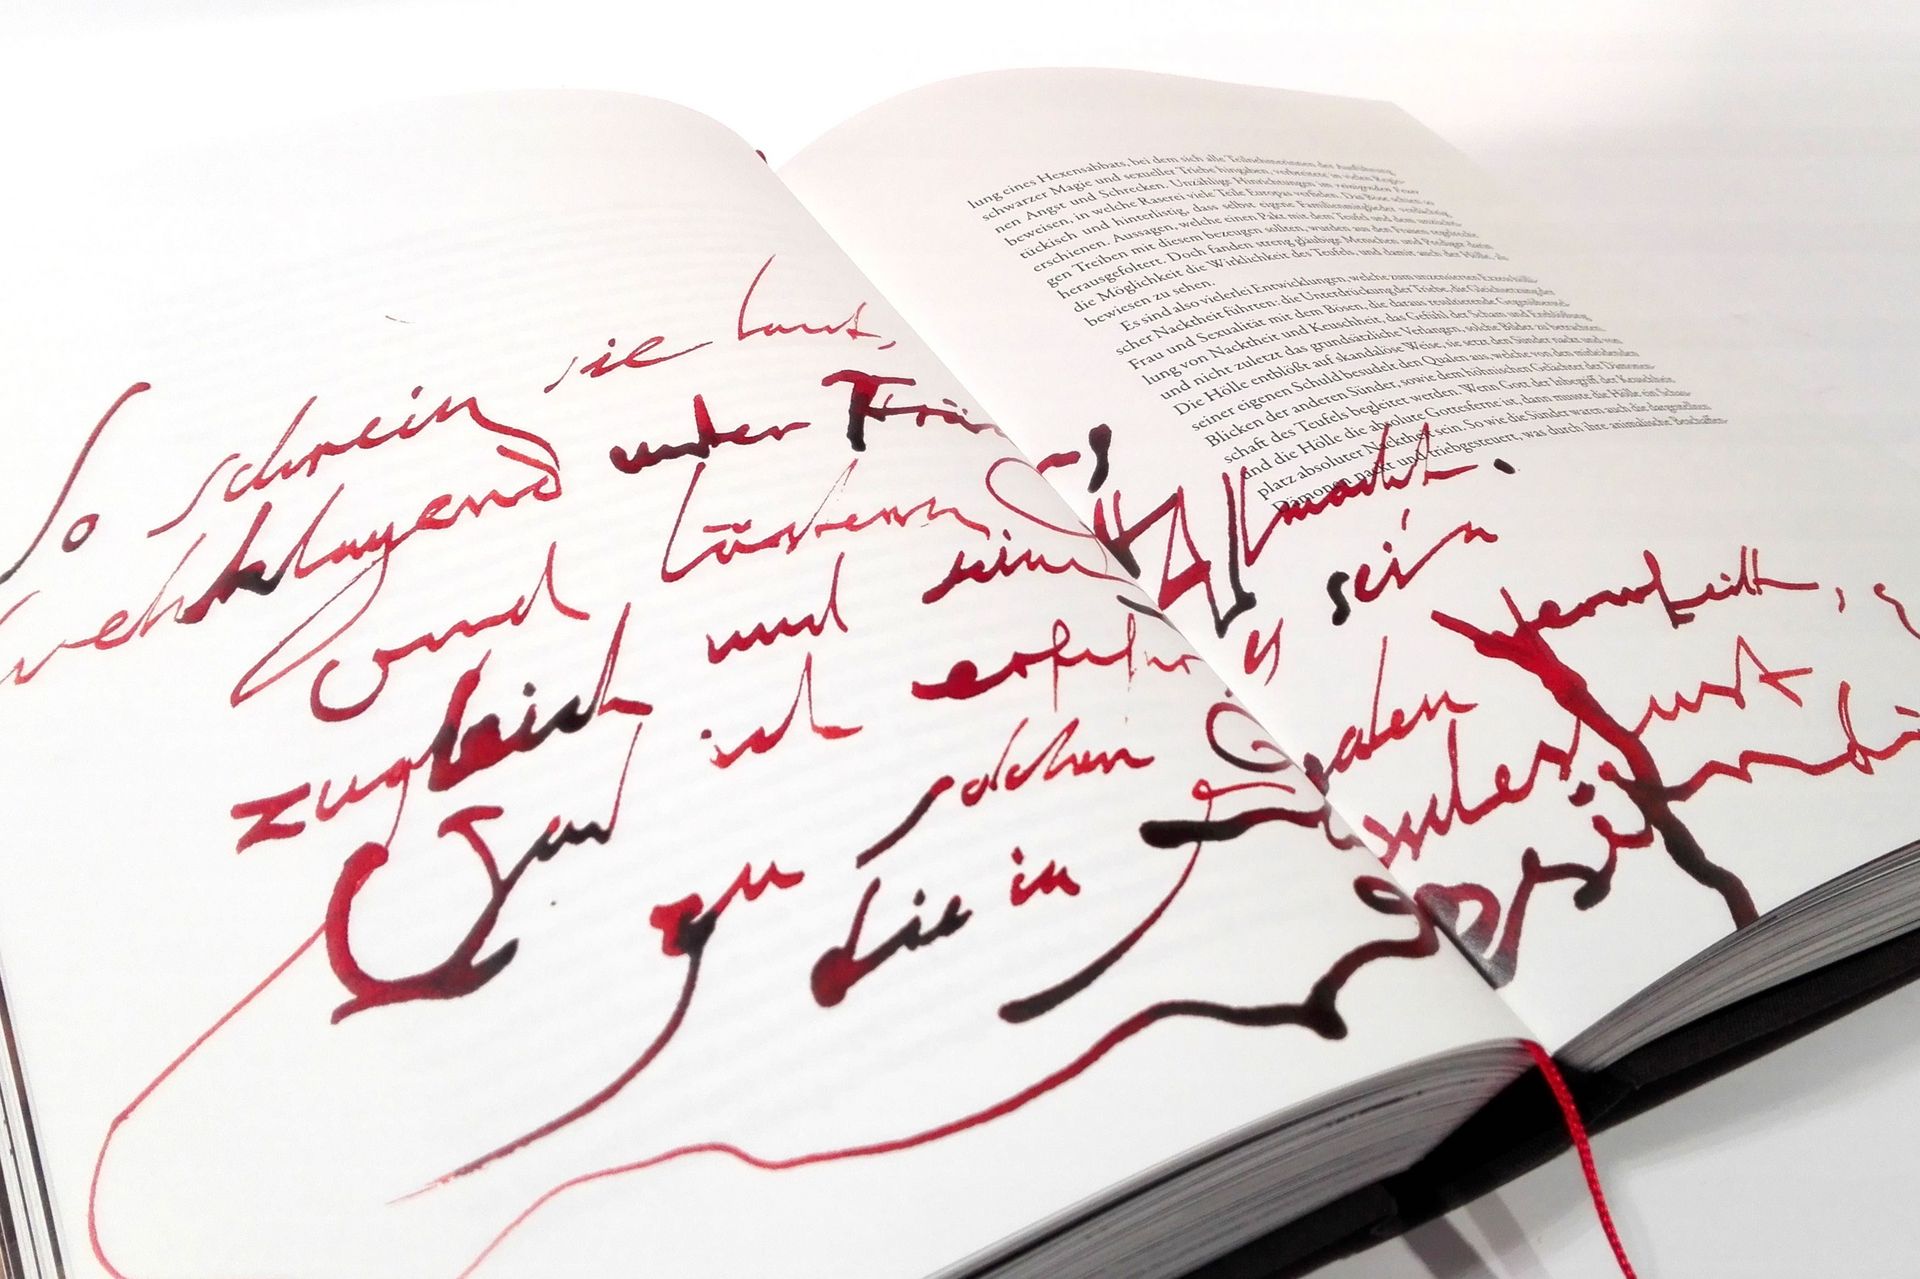 So schrein sie laut,
wehklagend unter
und lästern
zugleich und seine Allmacht.
Und ich erfuhr, es sei'n
zu solchen Qualen verurteilt,
die in
lung eines Hexensabbats, bei dem sich alle Teilnehmerinnen der Ausführung
schwarzer Magie und sexueller Triebe hingaben, verbreitete in vielen Regio-
nen Angst und Schrecken. Unzählige Hinrichtungen im reinigenden Feuer
beweisen, in welche Raserei viele Teile Europas verfielen. Das Böse schien so
tückisch und hinterlistig, dass selbst eigene Familienmitglieder verdächtig
erschienen. Aussagen, welche einen Pakt mit dem Teufel und dem unzüchti-
gen Treiben mit diesem bezeugen sollten, wurden aus den Frauen regelrecht
herausgefoltert. Doch fanden streng gläubige Menschen und Prediger darin
die Möglichkeit die Wirklichkeit des Teufels, und damit auch der Hölle, als
bewiesen zu sehen.
Es sind also vielerlei Entwicklungen, welche zum unzensierten Exzess hölli-
scher Nacktheit führten: die Unterdrückung der Triebe, die Gleichsetzung der
Frau und Sexualität mit dem Bösen, die daraus resultierende Gegenüberstel-
lung von Nacktheit und Keuschheit, das Gefühl der Scham und Entblößung
und nicht zuletzt das grundsätzliche Verlangen, solche Bilder zu betrachten.
Die Hölle entblößt auf skandalöse Weise, sie setzt den Sünder nackt und von
seiner eigenen Schuld besudelt den Qualen aus, welche von den mitleidenden
Blicken der anderen Sünder, sowie dem höhnischen Gelächter der Dämonen-
schaft des Teufels begleitet werden. Wenn Gott der Inbegriff der Keuschheit
und die Hölle die absolute Gottesferne ist, dann musste die Hölle ein Schau-
platz absoluter Nacktheit sein. So wie die Sünder waren auch die dargestellten
Dämonen nackt und triebgesteuert, was durch ihre animalische Beschaffen-